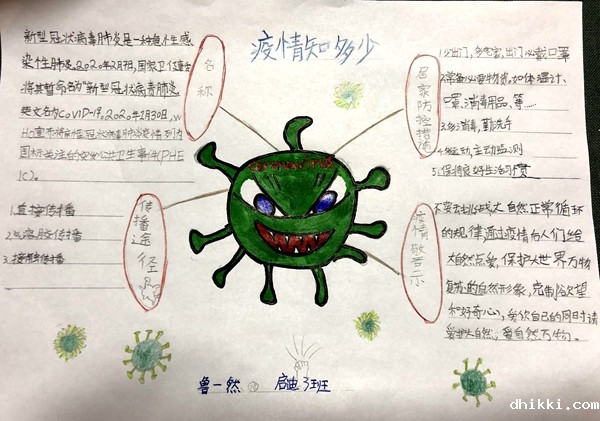 疫情知多少
新型冠状病毒肺炎是一种急性感
染性肺炎。2020年2月7日,国家卫健委
将其暂命名为"新型冠状病毒肺炎
英文名为COVID-19。2020年1月30日,w
Ho宣布将新型冠状病毒肺炎疫情列为
国际关注的突发公共卫生事件(PHE
IC)。
名称
1.直接传播
2.气溶胶传播
3.接触传播
传播途径
Coronavirus
居家防控措施
1.少出门,多宅家,出门必戴口罩
2.常备必要物资,如体温计、
口罩、消毒用品、等……
3.多消毒,勤洗手
4.多运动,主动监测
5.保持良好生活习惯
疫情敬告示
不要去挑战大自然正常循环
的规律,通过疫情向人们给
大自然点爱,保护大世界万物
的自然形象,克制欲望
和好奇心,爱你自己的同时请
爱护大自然,爱自然万物。
鲁一然 启迪3班
dhikki.com